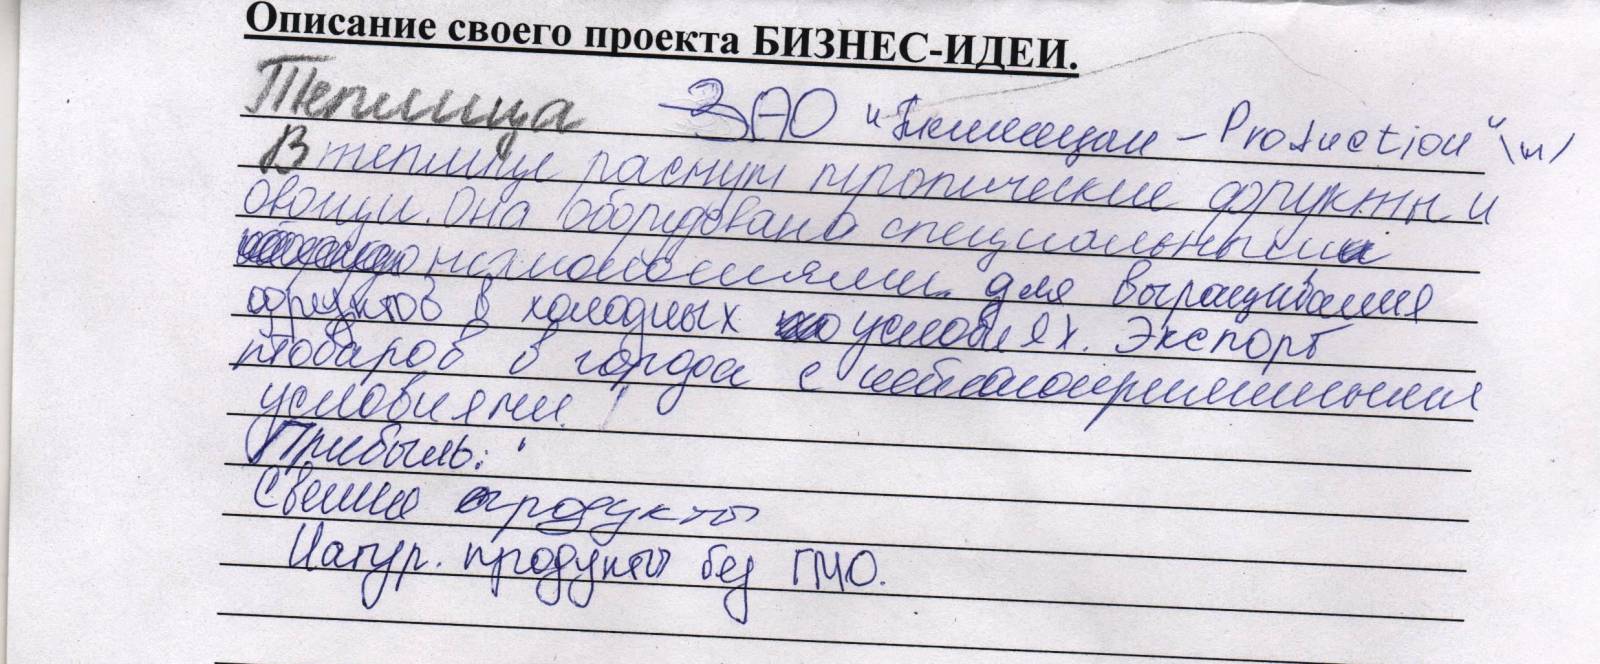 Описание своего проекта БИЗНЕС-ИДЕИ.
Теплица ЗАО " - Production"
В теплице растут тропические фрукты и
овощи. Она оборудована специальными
для выращивания
фруктов в холодных условиях. Экспорт
товаров в города с неблагоприятными
условиями.
Прибыль:
Свежие продукты
Натур. продукты без ГМО.